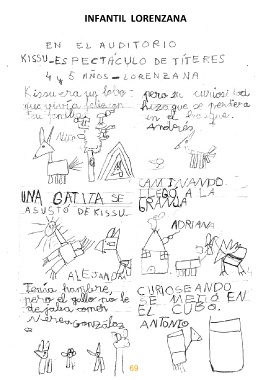 INFANTIL LORENZANA
EN EL AUDITORIO
KISSU-ESPECTÁCULO DE TÍTERES
4 y 5 AÑOS-LORENZANA
Kissu era un lobo
que vivía feliz en
su familia
pero su curiosidad
hizo que se perdiera
en el bosque.
Andrés
UNA GATITA SE
ASUSTO DE KISSU
CAMINANDO
LLEGO A LA
GRANJA
ADRIANA
ALEJANDRA
Tenía hambre,
pero el gallo no le
dejaba comer
Nerea González
CURIOSEANDO
SE METIO EN
EL CUBO.
ANTONIO
69